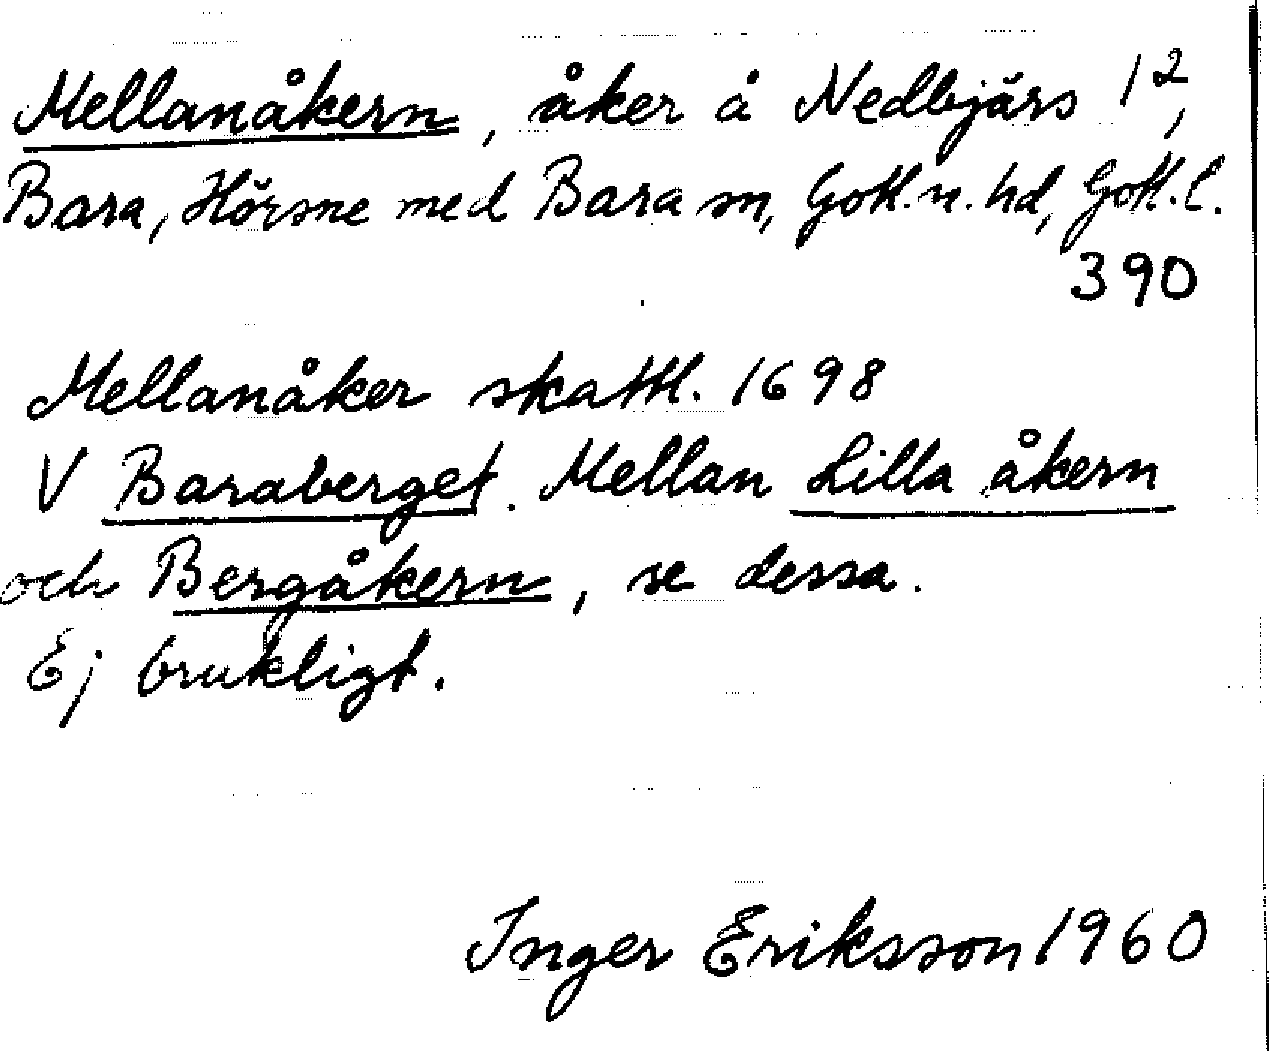 Mellanåkern, åker å Nedbjärs 1²,
Bara, Hörsne med Bara sn, Gotl. n. hd, Gotl. l.
390
Mellanåker skattl. 1698
V Baraberget. Mellan Lilla åkern
och Bergåkern, se dessa.
Ej brukligt.
Inger Eriksson 1960